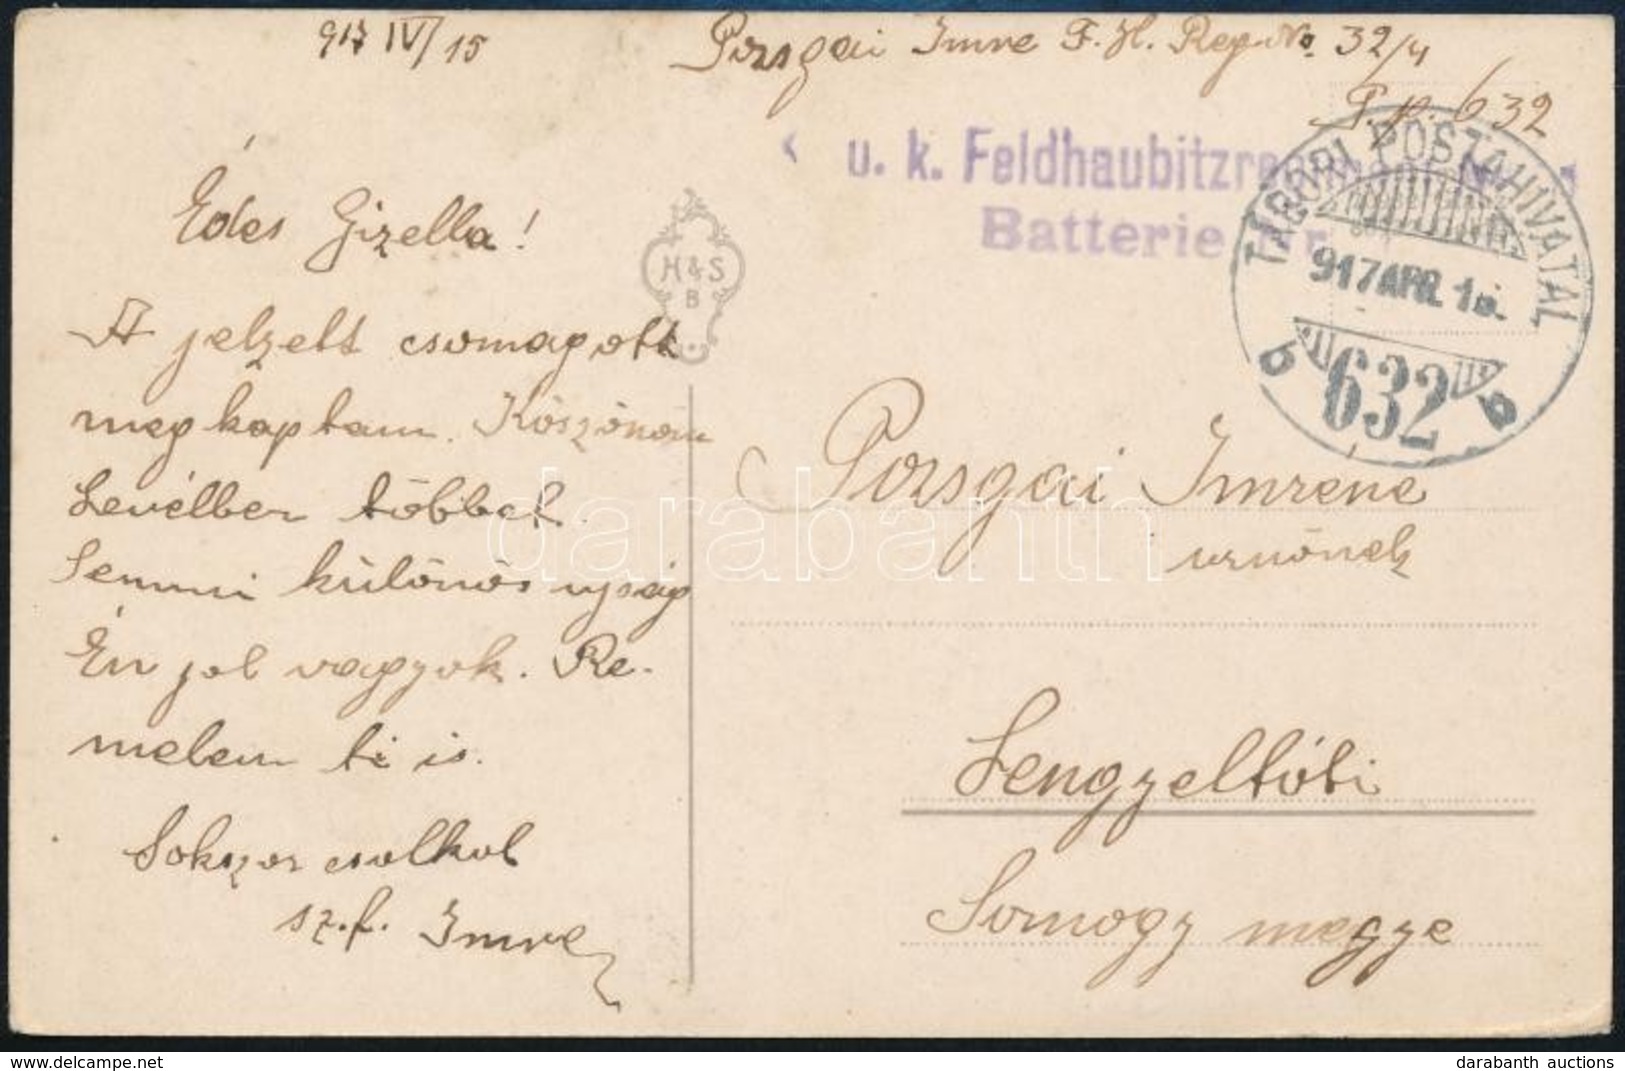 917 IV/15
Pozsgai Imre F. H. Reg. No. 32/4
P. p. 632
u. k. Feldhaubitzreg
Batterie Nr
TÁBORI POSTAHIVATAL
917 APR. 15.
632
b b
H & S
B
Édes Gizella!
A jelzett csomagott
megkaptam. Köszönöm
Levélben többet.
Semmi különös ujság
Én jol vagyok. Re-
melem ti is.
Sokszor csolkol
sz. f. Imre
Pozsgai Imréne
urnőnek
Lengyeltóti
Somogy megye
darabanth
www.delcampe.net
darabanth auctions